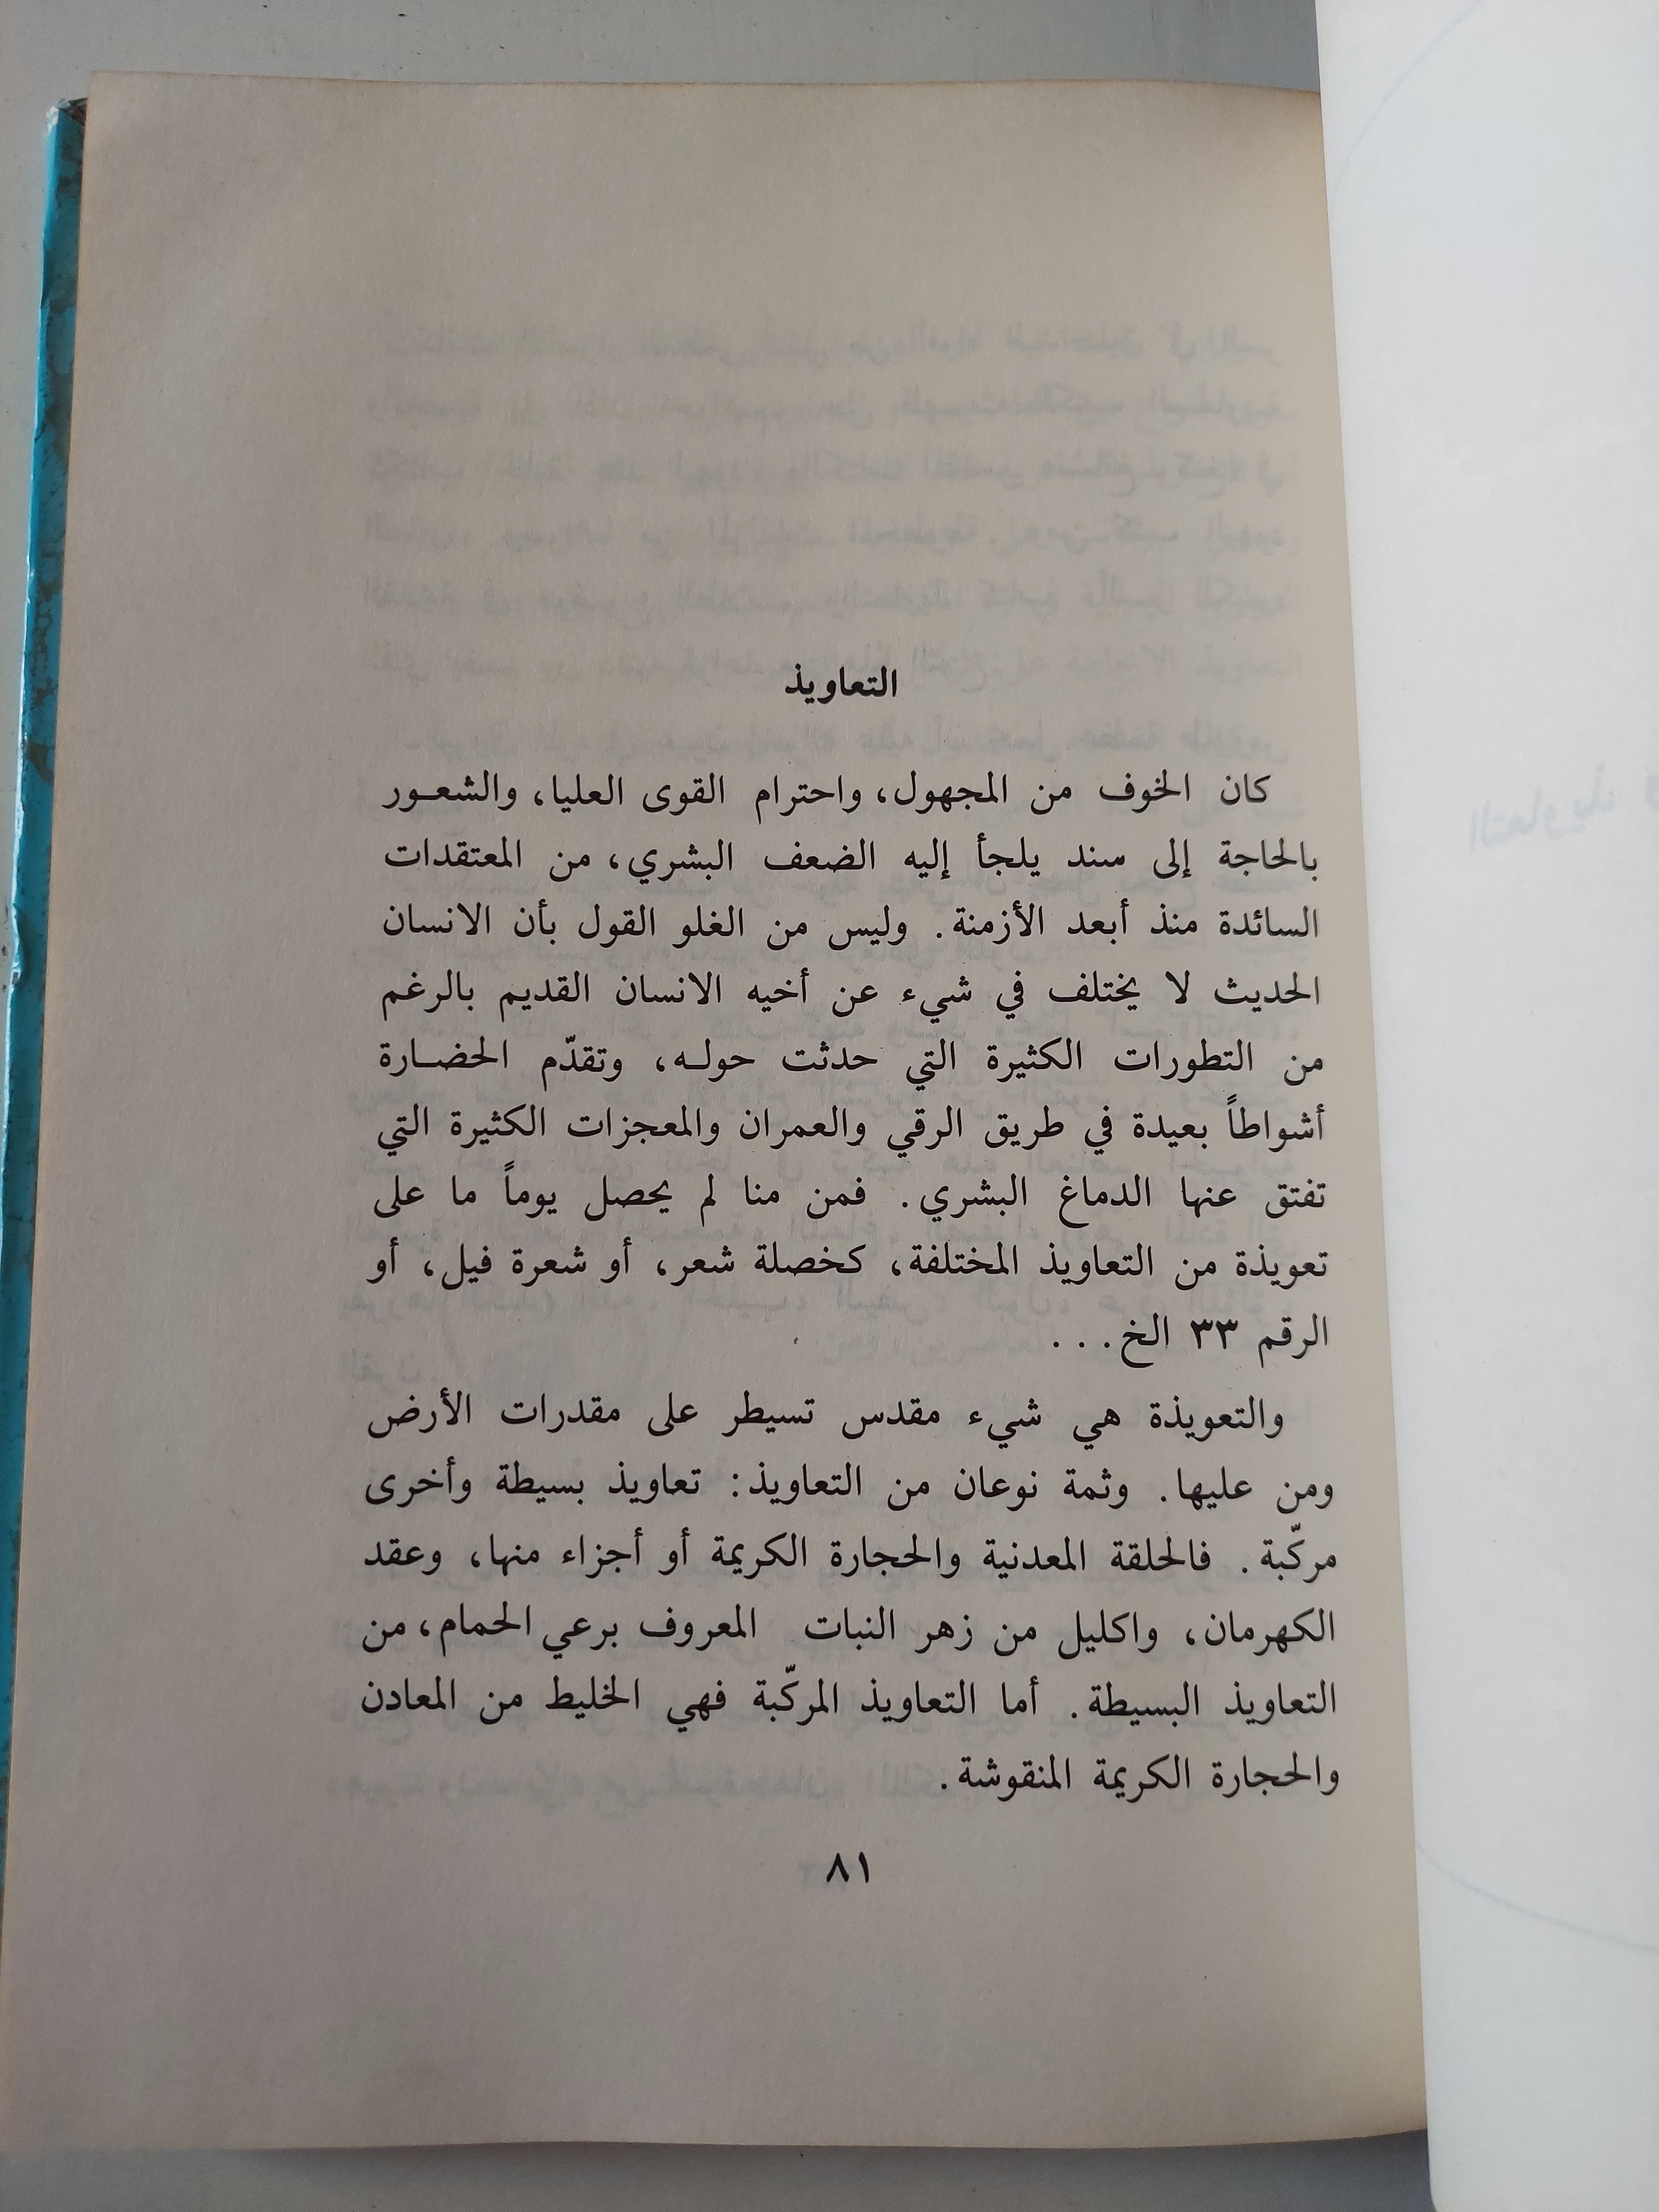 التعاويذ
كان الخوف من المجهول، واحترام القوى العليا، والشعـور
بالحاجة إلى سند يلجأ إليه الضعف البشري، من المعتقدات
السائدة منذ أبعد الأزمنة. وليس من الغلو القول بأن الانسان
الحديث لا يختلف في شيء عن أخيه الانسان القديم بالرغم
من التطورات الكثيرة التي حدثت حولـه، وتقدّم الحضـارة
أشواطاً بعيدة في طريق الرقي والعمران والمعجزات الكثيرة التي
تفتق عنها الدماغ البشري. فمن منا لم يحصل يوماً ما على
تعويذة من التعاويذ المختلفة، كخصلة شعر، أو شعرة فيل، أو
الرقم ٣٣ الخ...
والتعويذة هي شيء مقدس تسيطر على مقدرات الأرض
ومن عليها. وثمة نوعان من التعاويذ: تعاويذ بسيطة وأخرى
مركّبة. فالحلقة المعدنية والحجارة الكريمة أو أجزاء منها، وعقد
الكهرمان، واكليل من زهر النبات المعروف برعي الحمام، من
التعاويذ البسيطة. أما التعاويذ المركّبة فهي الخليط من المعادن
والحجارة الكريمة المنقوشة.
٨١
التعاويذ